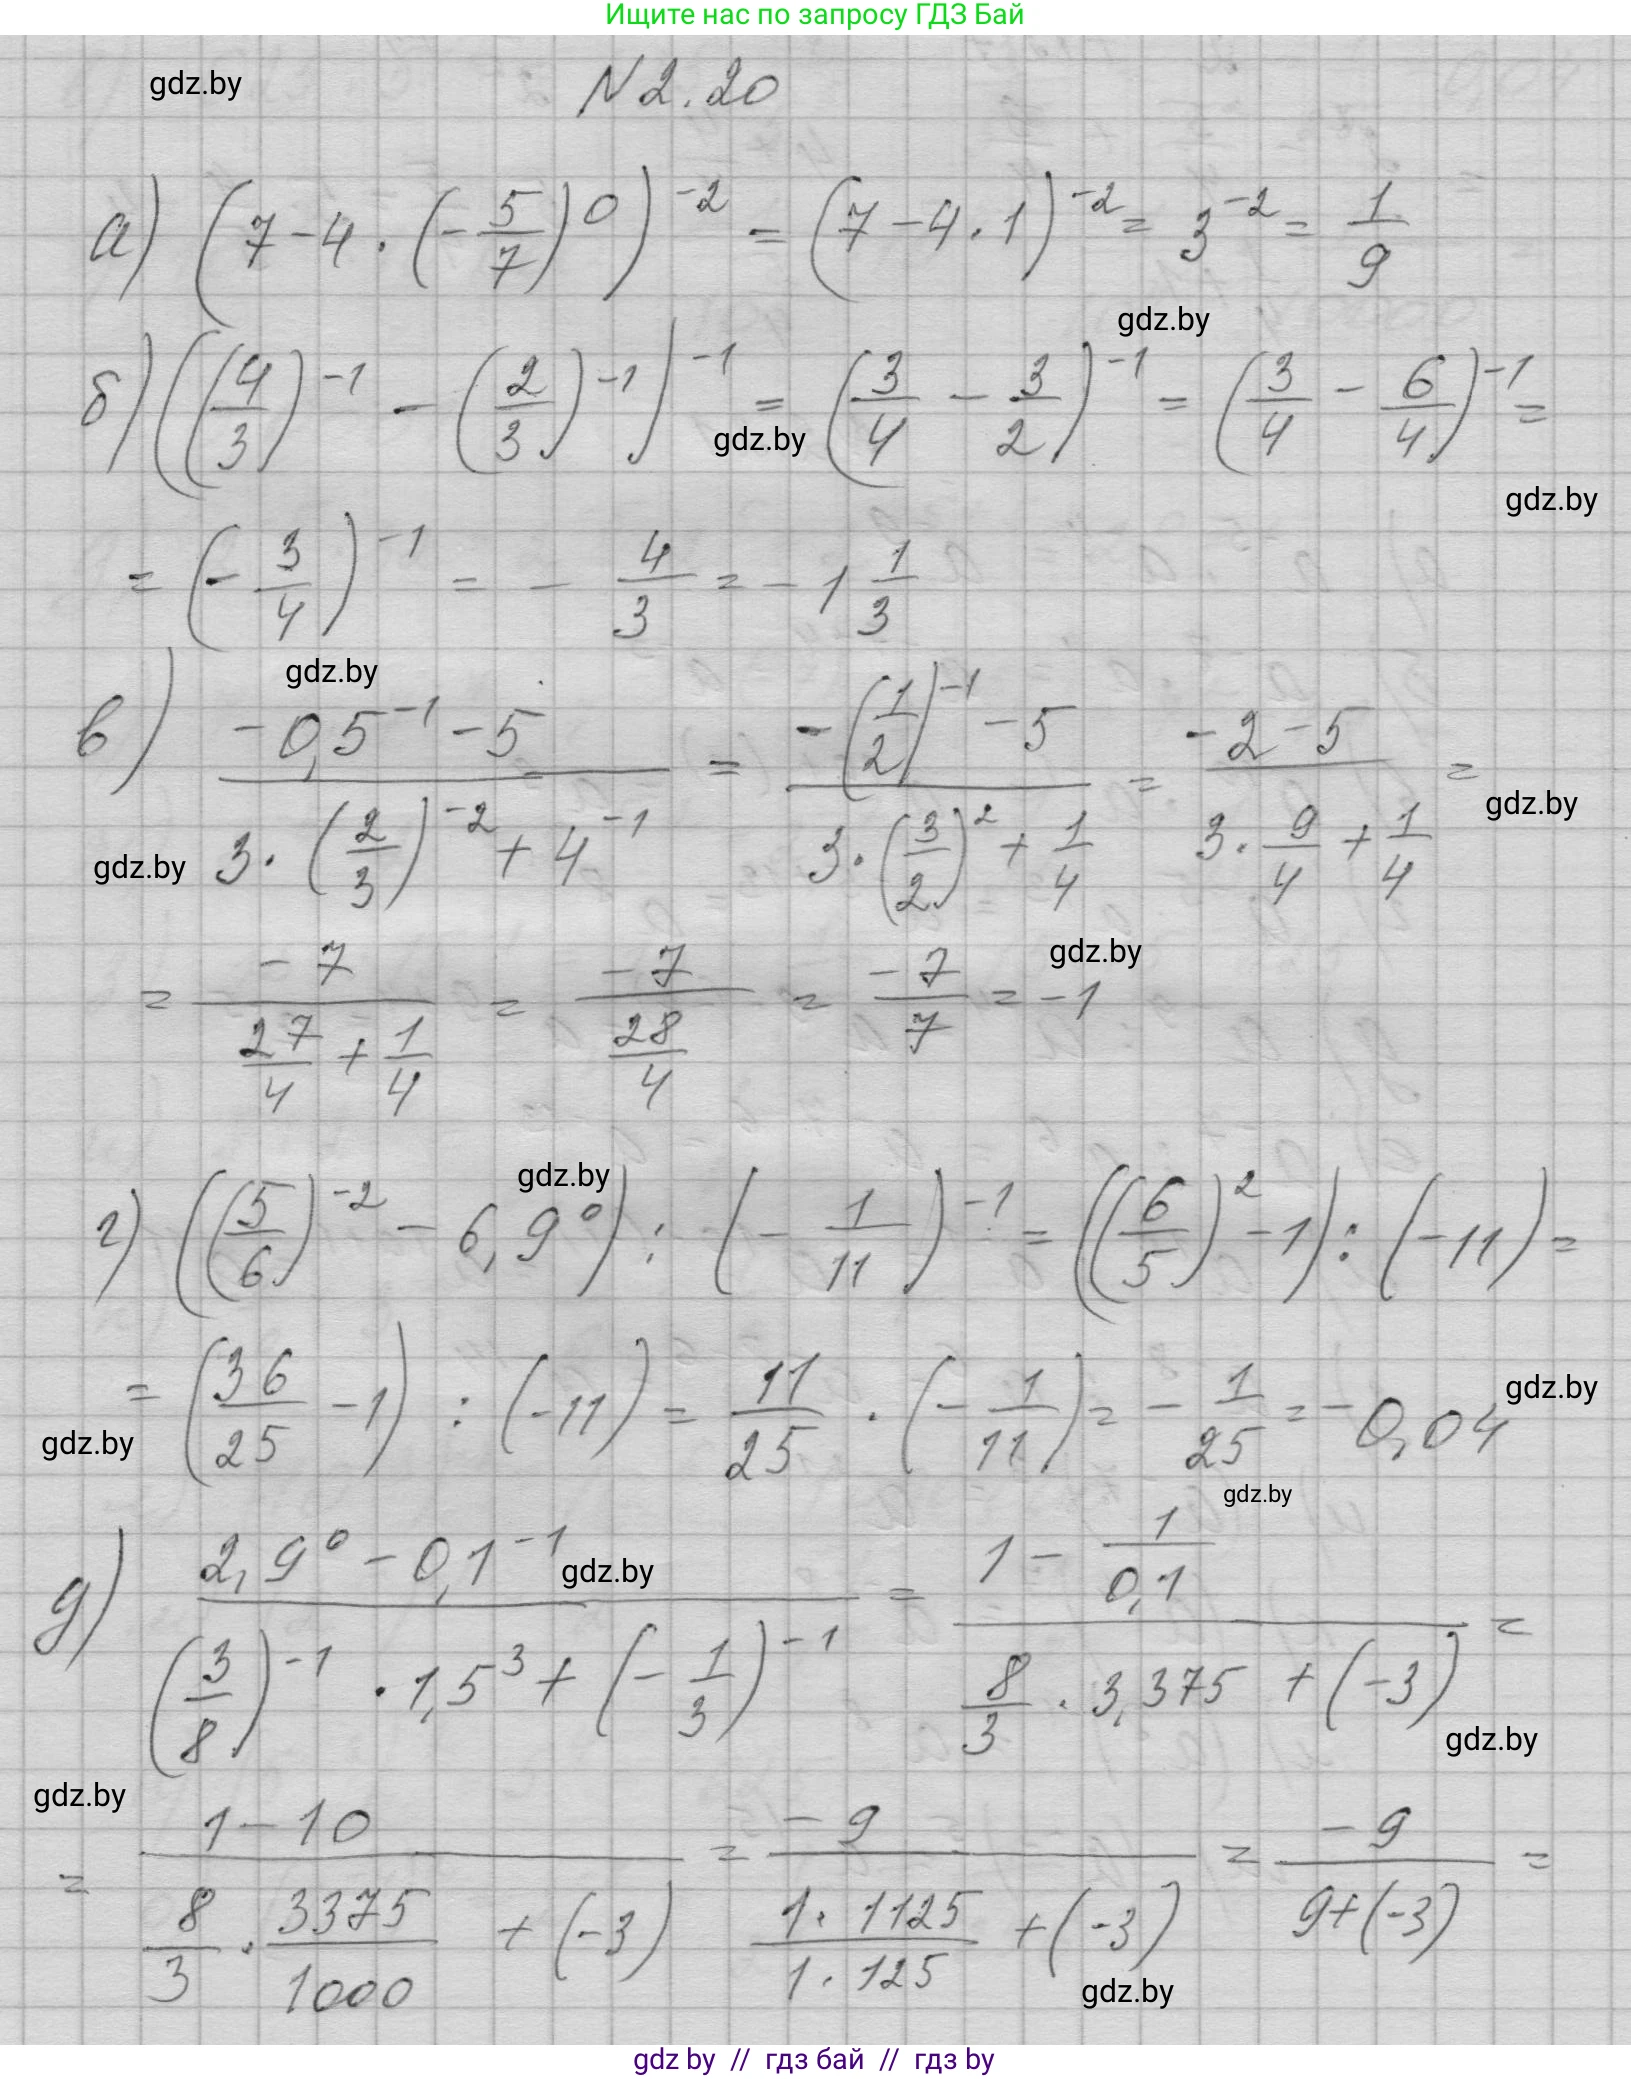 Ищите нас по запросу ГДЗ Бай
gdz.by
N 2.20
а) (7 - 4 · (-5/7)^0)^-2 = (7 - 4 · 1)^-2 = 3^-2 = 1/9
gdz.by
б) ((4/3)^-1 - (2/3)^-1)^-1 = (3/4 - 3/2)^-1 = (3/4 - 6/4)^-1 =
gdz.by
gdz.by
= (-3/4)^-1 = - 4/3 = -1 1/3
gdz.by
в) (-0,5^-1 - 5)/(3 · (2/3)^-2 + 4^-1) = (-(1/2)^-1 - 5)/(3 · (3/2)^2 + 1/4) = (-2 - 5)/(3 · 9/4 + 1/4) =
gdz.by
gdz.by
= -7/(27/4 + 1/4) = -7/(28/4) = -7/7 = -1
gdz.by
gdz.by
г) ((5/6)^-2 - 6,9^0) : (-1/11)^-1 = ((6/5)^2 - 1) : (-11) =
= (36/25 - 1) : (-11) = 11/25 · (-1/11) = -1/25 = -0,04
gdz.by
gdz.by
gdz.by
д) (2,9^0 - 0,1^-1)/((3/8)^-1 · 1,5^3 + (-1/3)^-1) = (1 - 1/0,1)/(8/3 · 3,375 + (-3)) =
gdz.by
gdz.by
gdz.by
= (1 - 10)/(8/3 · 3375/1000 + (-3)) = -9/((1 · 1125)/(1 · 125) + (-3)) = -9/(9 + (-3)) =
gdz.by
gdz by // гдз бай // гдз by